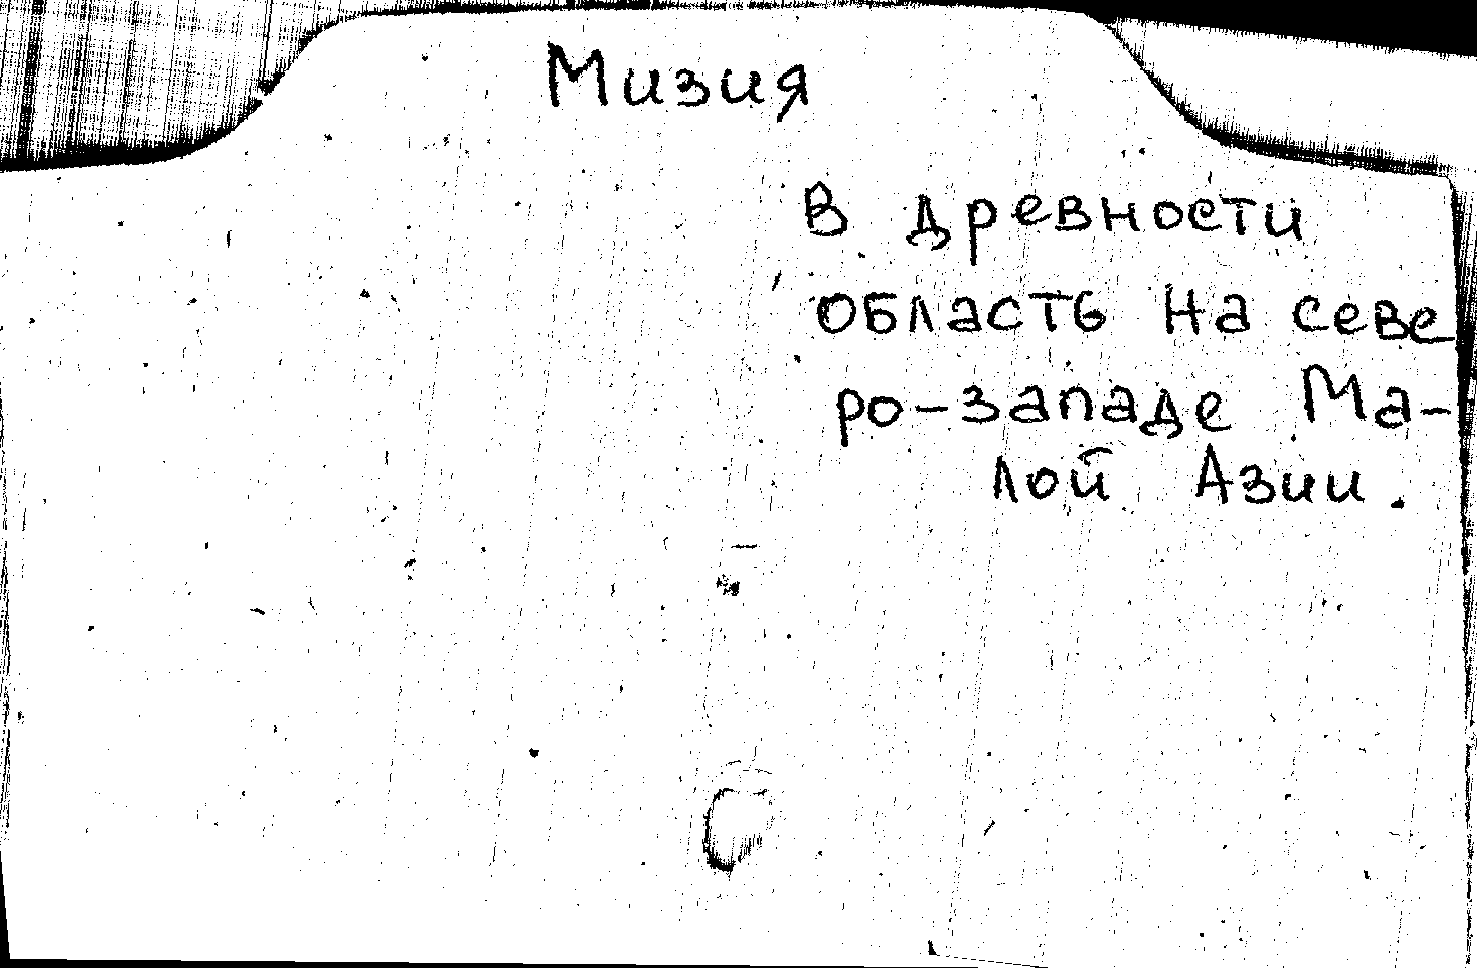 Мизия
В древности
область на севе
ро-западе Ма-
лой Азии.